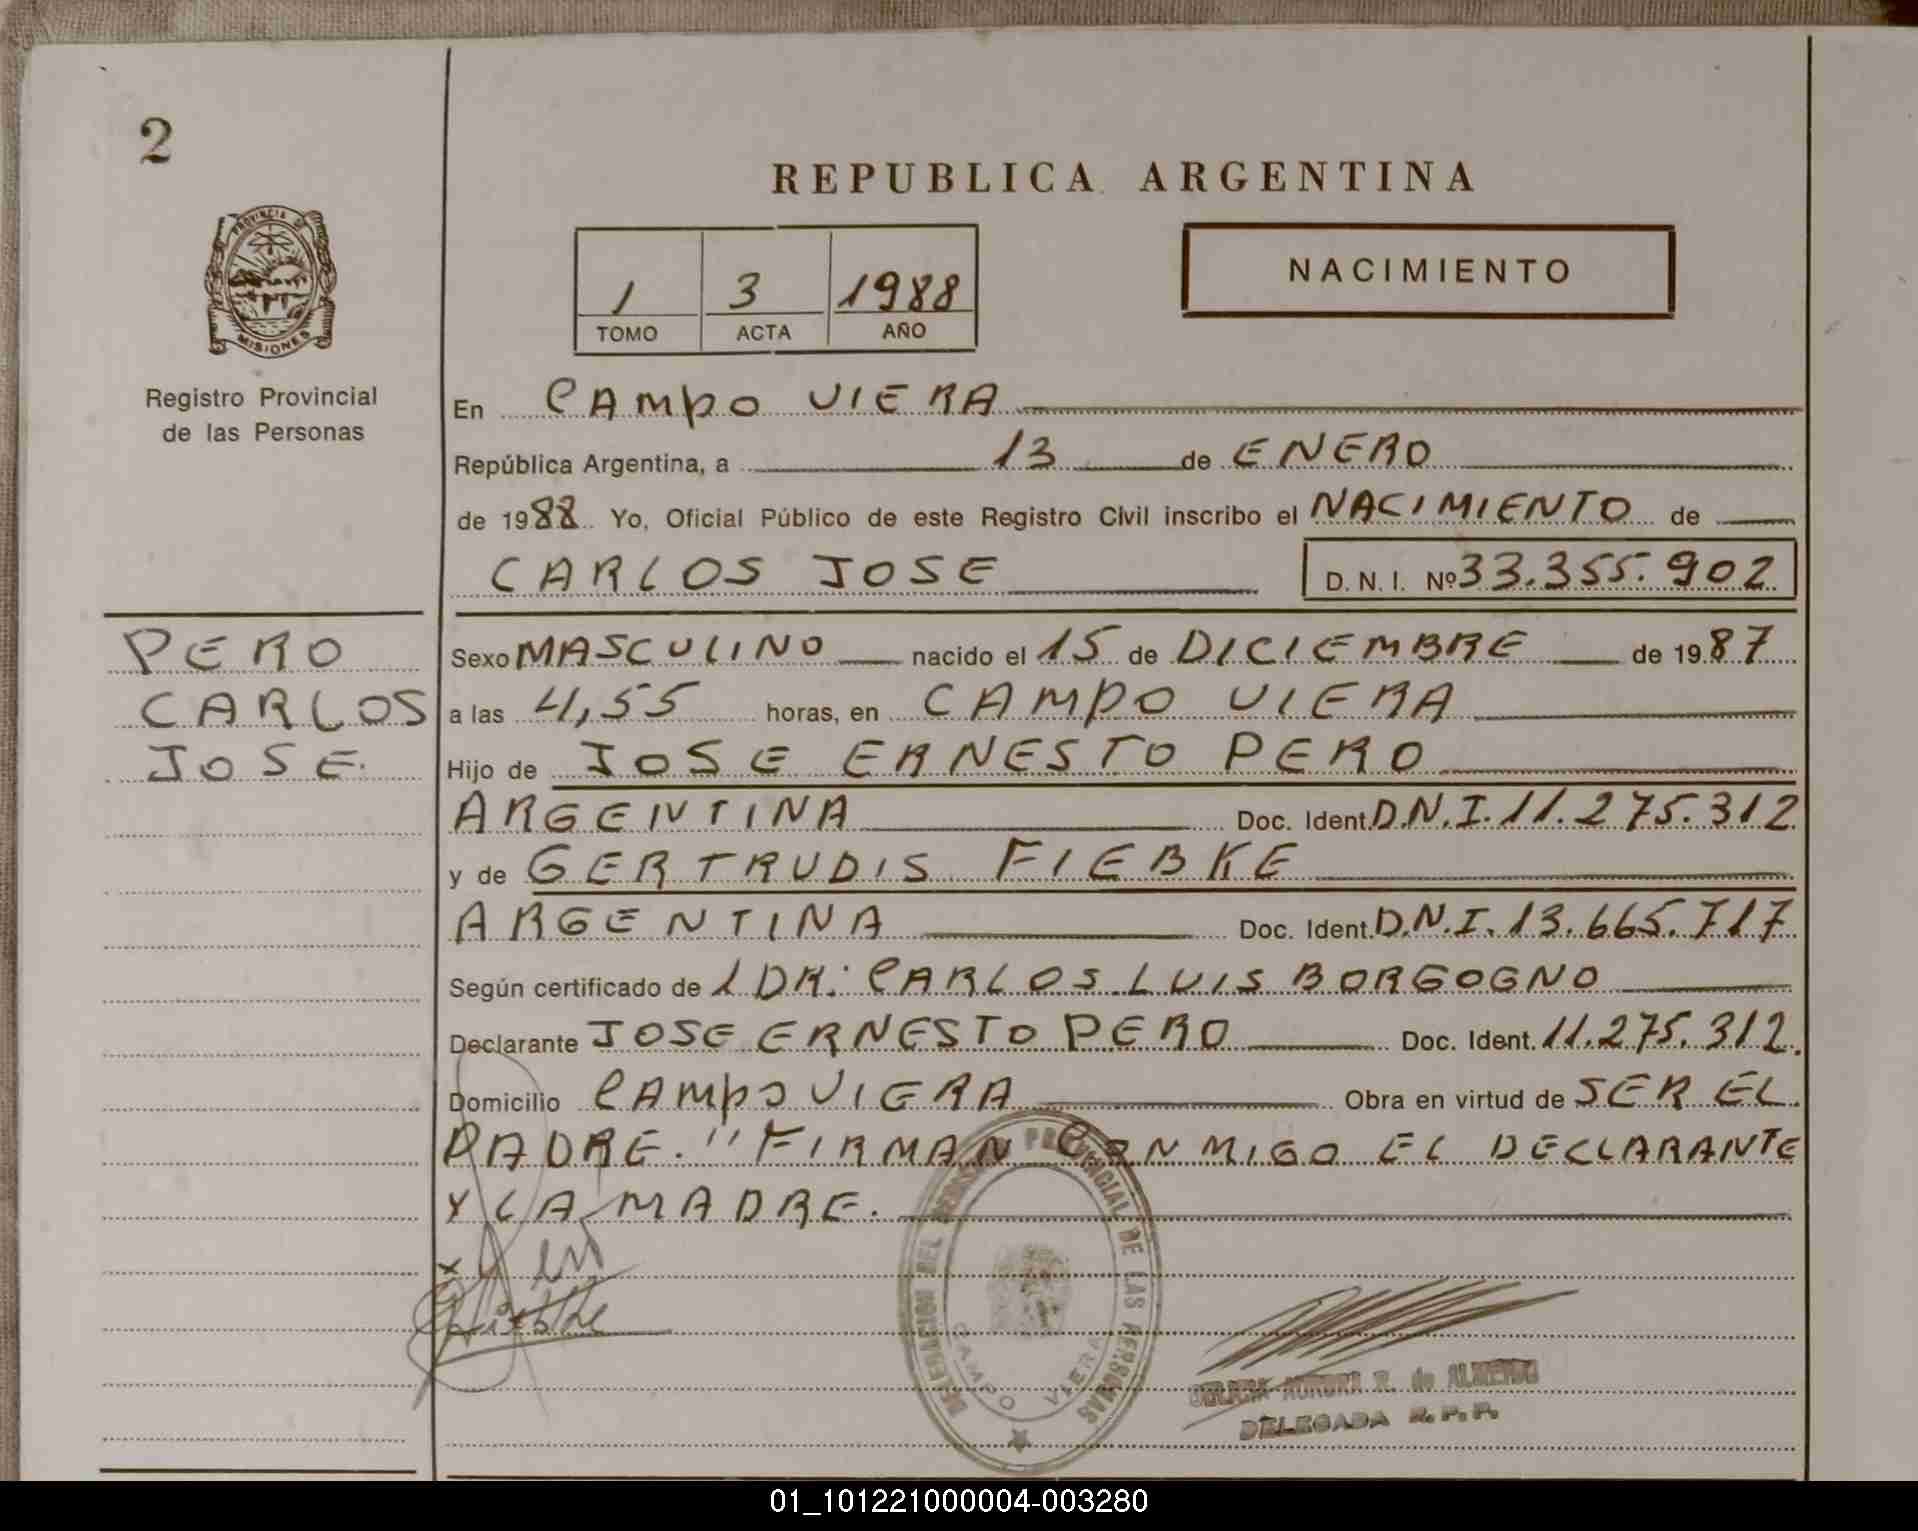 2
REPUBLICA ARGENTINA
PROVINCIA DE
MISIONES
Registro Provincial
de las Personas
1 3 1988
TOMO ACTA AÑO
NACIMIENTO
En CAMPO VIERA
República Argentina, a 13 de ENERO
de 1988 Yo, Oficial Público de este Registro Civil inscribo el NACIMIENTO de
CARLOS JOSE D. N. I. Nº 33.355.902
PERO
CARLOS
JOSE.
Sexo MASCULINO nacido el 15 de DICIEMBRE de 1987
a las 4,55 horas, en CAMPO VIERA
Hijo de JOSE ERNESTO PERO
ARGENTINA Doc. Ident. D.N.I. 11.275.312
y de GERTRUDIS FIEBKE
ARGENTINA Doc. Ident. D.N.I. 13.665.717
Según certificado de 1 DR: CARLOS LUIS BORGOGNO
Declarante JOSE ERNESTO PERO Doc. Ident. 11.275.312.
Domicilio CAMPO VIERA Obra en virtud de SER EL
PADRE. " FIRMAN CONMIGO EL DECLARANTE
Y LA MADRE.
DELEGACION DEL REGISTRO PROVINCIAL DE LAS PERSONAS
CAMPO VIERA
AURORA R. de ALMEIDO
DELEGADA R. P. P.
01_101221000004-003280